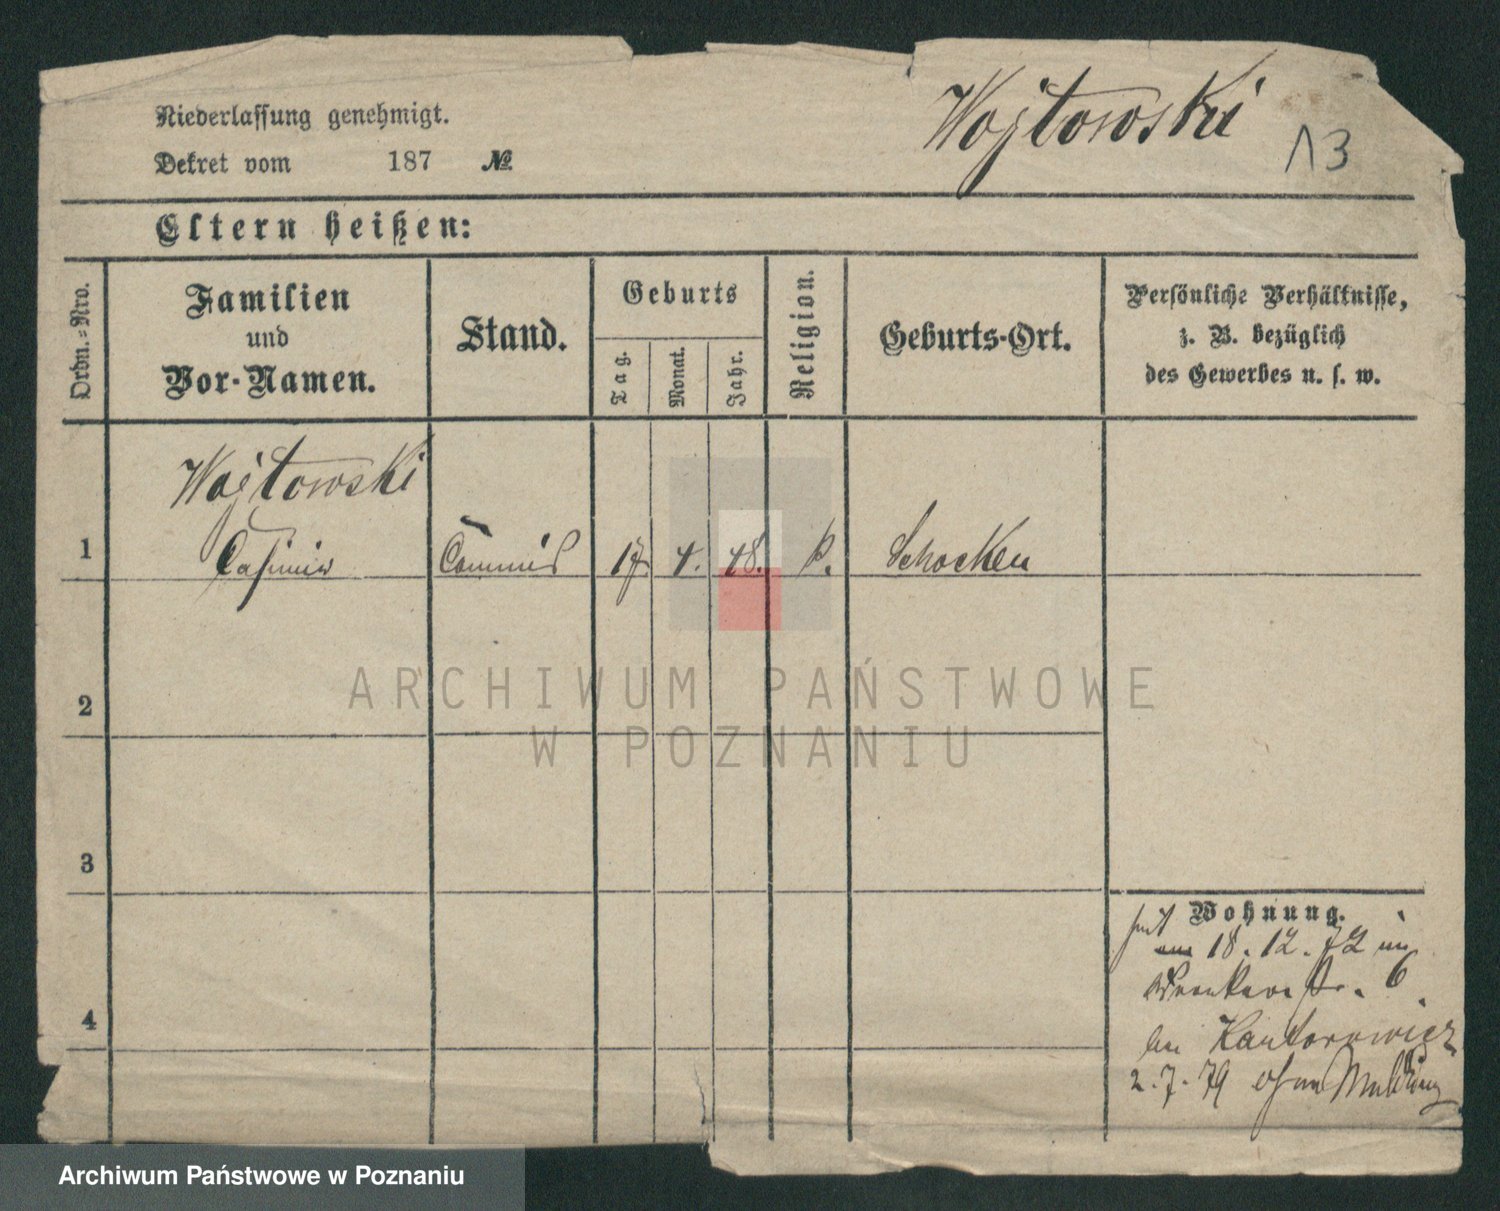 Wojtowski
13
Niederlassung genehmigt.
Dekret vom 187 №
Eltern heißen:
Ordn.-Nro.
Familien
und
Vor-Namen.
Stand.
Geburts
Tag.
Monat.
Jahr.
Religion.
Geburts-Ort.
Persönliche Verhältnisse,
z. B. bezüglich
des Gewerbes u. s. w.
Wojtowski
1 Casimir Commis 17 4. 48. k. Schocken
2
3
4
Wohnung.
18. 12. 72 in
Wronkerstr. 6.
bei Kantorowicz
2. 7. 79 ohne Meldung
ARCHIWUM PAŃSTWOWE
W POZNANIU
Archiwum Państwowe w Poznaniu